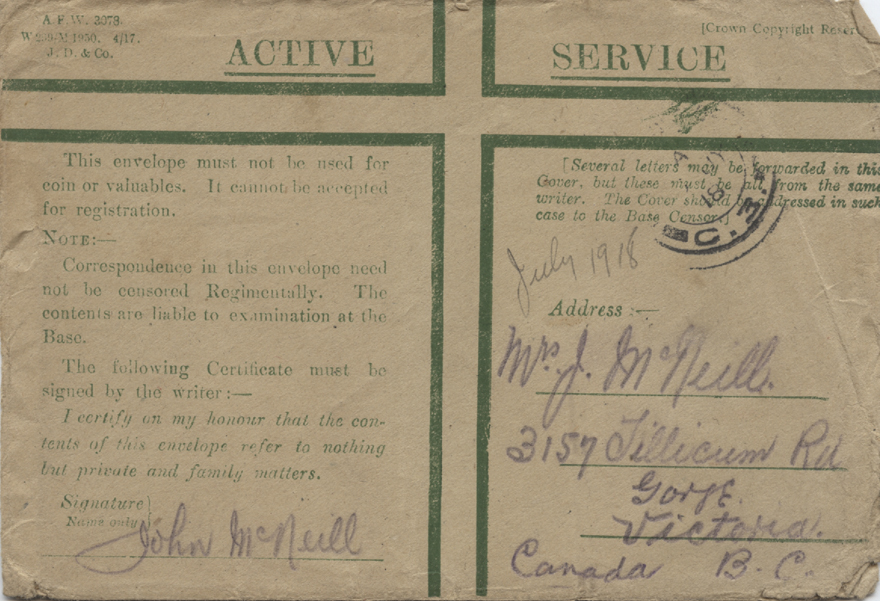 A.F.W. 3078.
4/17.
J. D. & Co.
[Crown Copyright
ACTIVE SERVICE
This envelope must not be used for
coin or valuables. It cannot be accepted
for registration.
NOTE:—
Correspondence in this envelope need
not be censored Regimentally. The
contents are liable to examination at the
Base.
The following Certificate must be
signed by the writer:—
I certify on my honour that the con-
tents of this envelope refer to nothing
but private and family matters.
Signature
Name only
John McNeill
[Several letters may be forwarded in this
Cover, but these must be all from the same
writer. The Cover should be addressed in such
case to the Base Censor.]
July 1918
Address :—
Mrs. J. McNeill.
3157 Tillicum Rd
Gorge.
Victoria.
Canada B. C.